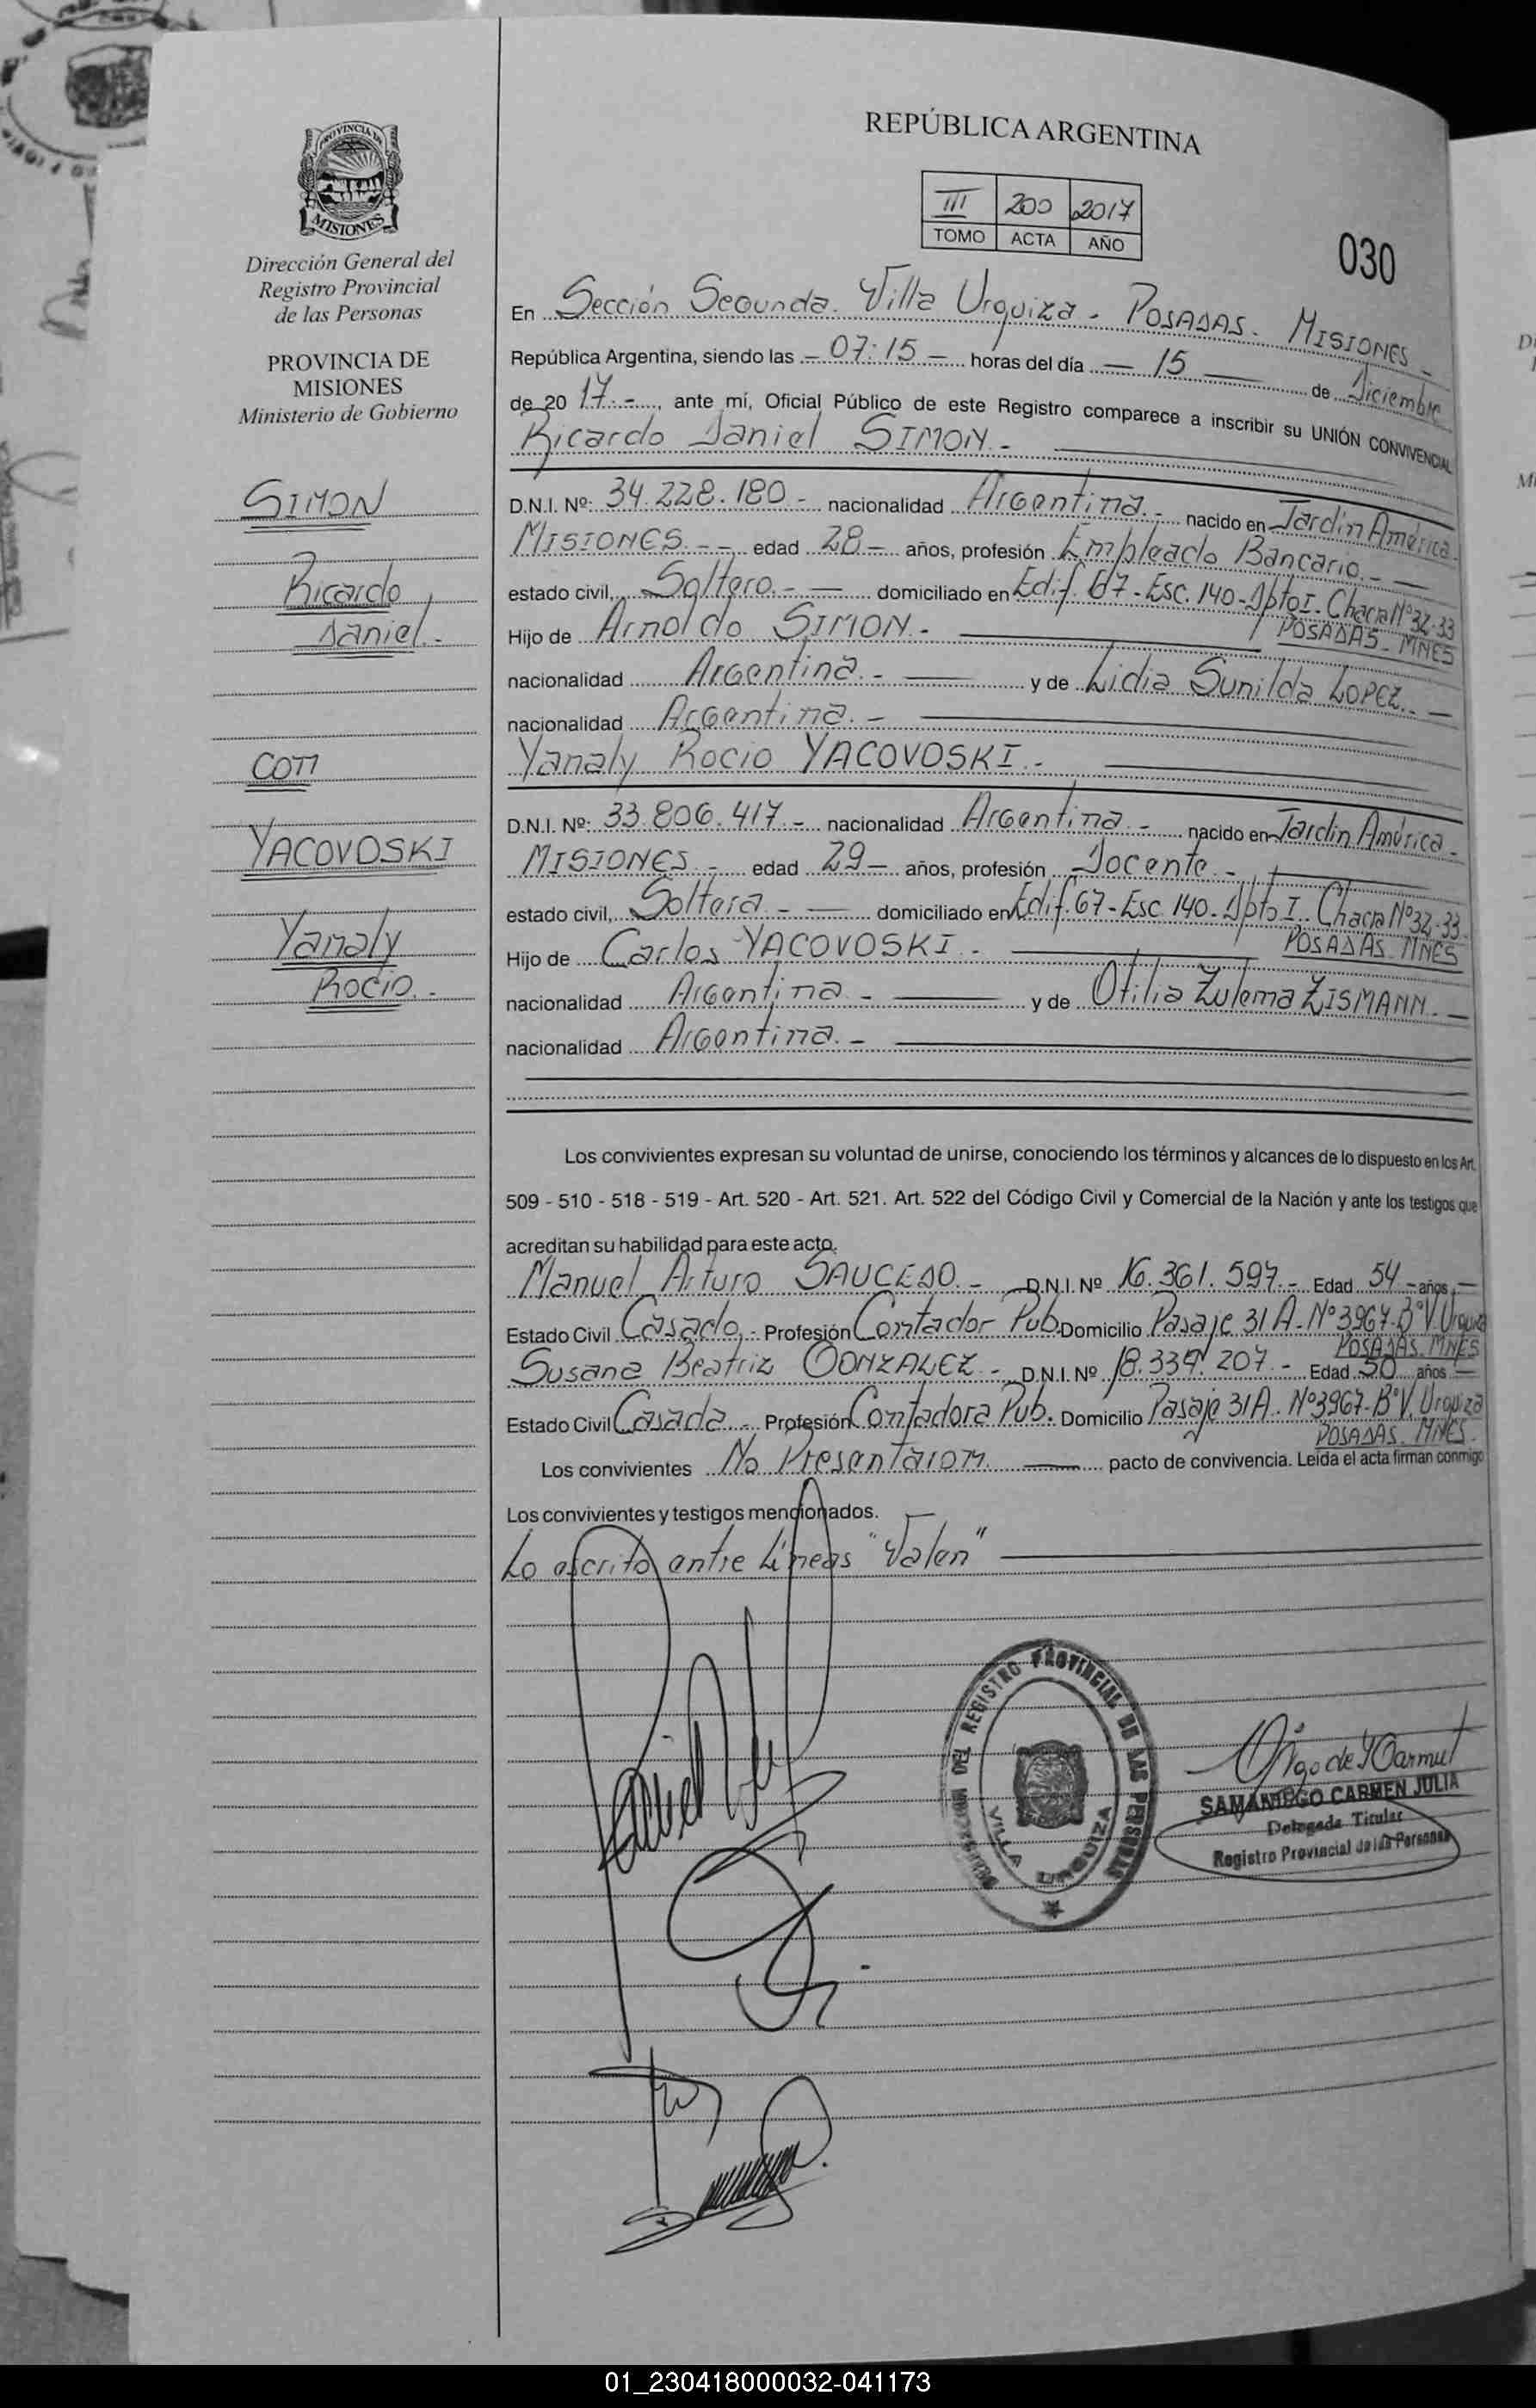 PROVINCIA DE
MISIONES
Dirección General del
Registro Provincial
de las Personas
PROVINCIA DE
MISIONES
Ministerio de Gobierno
SIMON
Ricardo
Daniel.-
con
YACOVOSKI
Yanaly
Rocio.-
REPÚBLICA ARGENTINA
III 200 2017
TOMO ACTA AÑO
030
En Sección Segunda. Villa Urquiza - POSADAS - MISIONES -
República Argentina, siendo las - 07:15 - horas del día - 15 - de Diciembre
de 20 17.-, ante mí, Oficial Público de este Registro comparece a inscribir su UNIÓN CONVIVENCIAL
Ricardo Daniel SIMON.-
D.N.I. Nº: 34.228.180.- nacionalidad Argentina.- nacido en Jardín América.
MISIONES.- - edad 28 - años, profesión Empleado Bancario.-
estado civil, Soltero.- domiciliado en Edif. 67 - Esc. 140 - Dpto I. Chacra Nº 32-33
POSADAS - MNES
Hijo de Arnoldo SIMON.-
nacionalidad Argentina.- y de Lidia Sunilda LOPEZ.-
nacionalidad Argentina.-
Yanaly Rocio YACOVOSKI.-
D.N.I. Nº: 33.806.417.- nacionalidad Argentina.- nacido en Jardín América -
MISIONES.- edad 29 - años, profesión Docente.-
estado civil, Soltera.- domiciliado en Edif. 67 - Esc 140 - Dpto I. Chacra Nº 32-33
POSADAS - MNES
Hijo de Carlos YACOVOSKI.-
nacionalidad Argentina - y de Otilia Zulema ZISMANN.-
nacionalidad Argentina.-
Los convivientes expresan su voluntad de unirse, conociendo los términos y alcances de lo dispuesto en los Art.
509 - 510 - 518 - 519 - Art. 520 - Art. 521. Art. 522 del Código Civil y Comercial de la Nación y ante los testigos que
acreditan su habilidad para este acto.
Manuel Arturo SAUCEDO.- D.N.I. Nº 16.361.597.- Edad 54 - años -
Estado Civil Casado.- Profesión Contador Pub. Domicilio Pasaje 31 A - Nº 3967 - Bº V. Urquiza
POSADAS - MNES
Susana Beatriz GONZALEZ - D.N.I. Nº 18.339.207.- Edad 50 años -
Estado Civil Casada.- Profesión Contadora Pub. Domicilio Pasaje 31 A - Nº 3967 - Bº V. Urquiza
POSADAS - MNES -
Los convivientes No Presentaron. pacto de convivencia. Leída el acta firman conmigo
Los convivientes y testigos mencionados.
Lo escrito entre Líneas "Valen"
DEL REGISTRO PROVINCIAL DE LAS PERSONAS
VILLA URQUIZA
SAMANIEGO CARMEN JULIA
Delegada Titular
Registro Provincial de las Personas
01_230418000032-041173